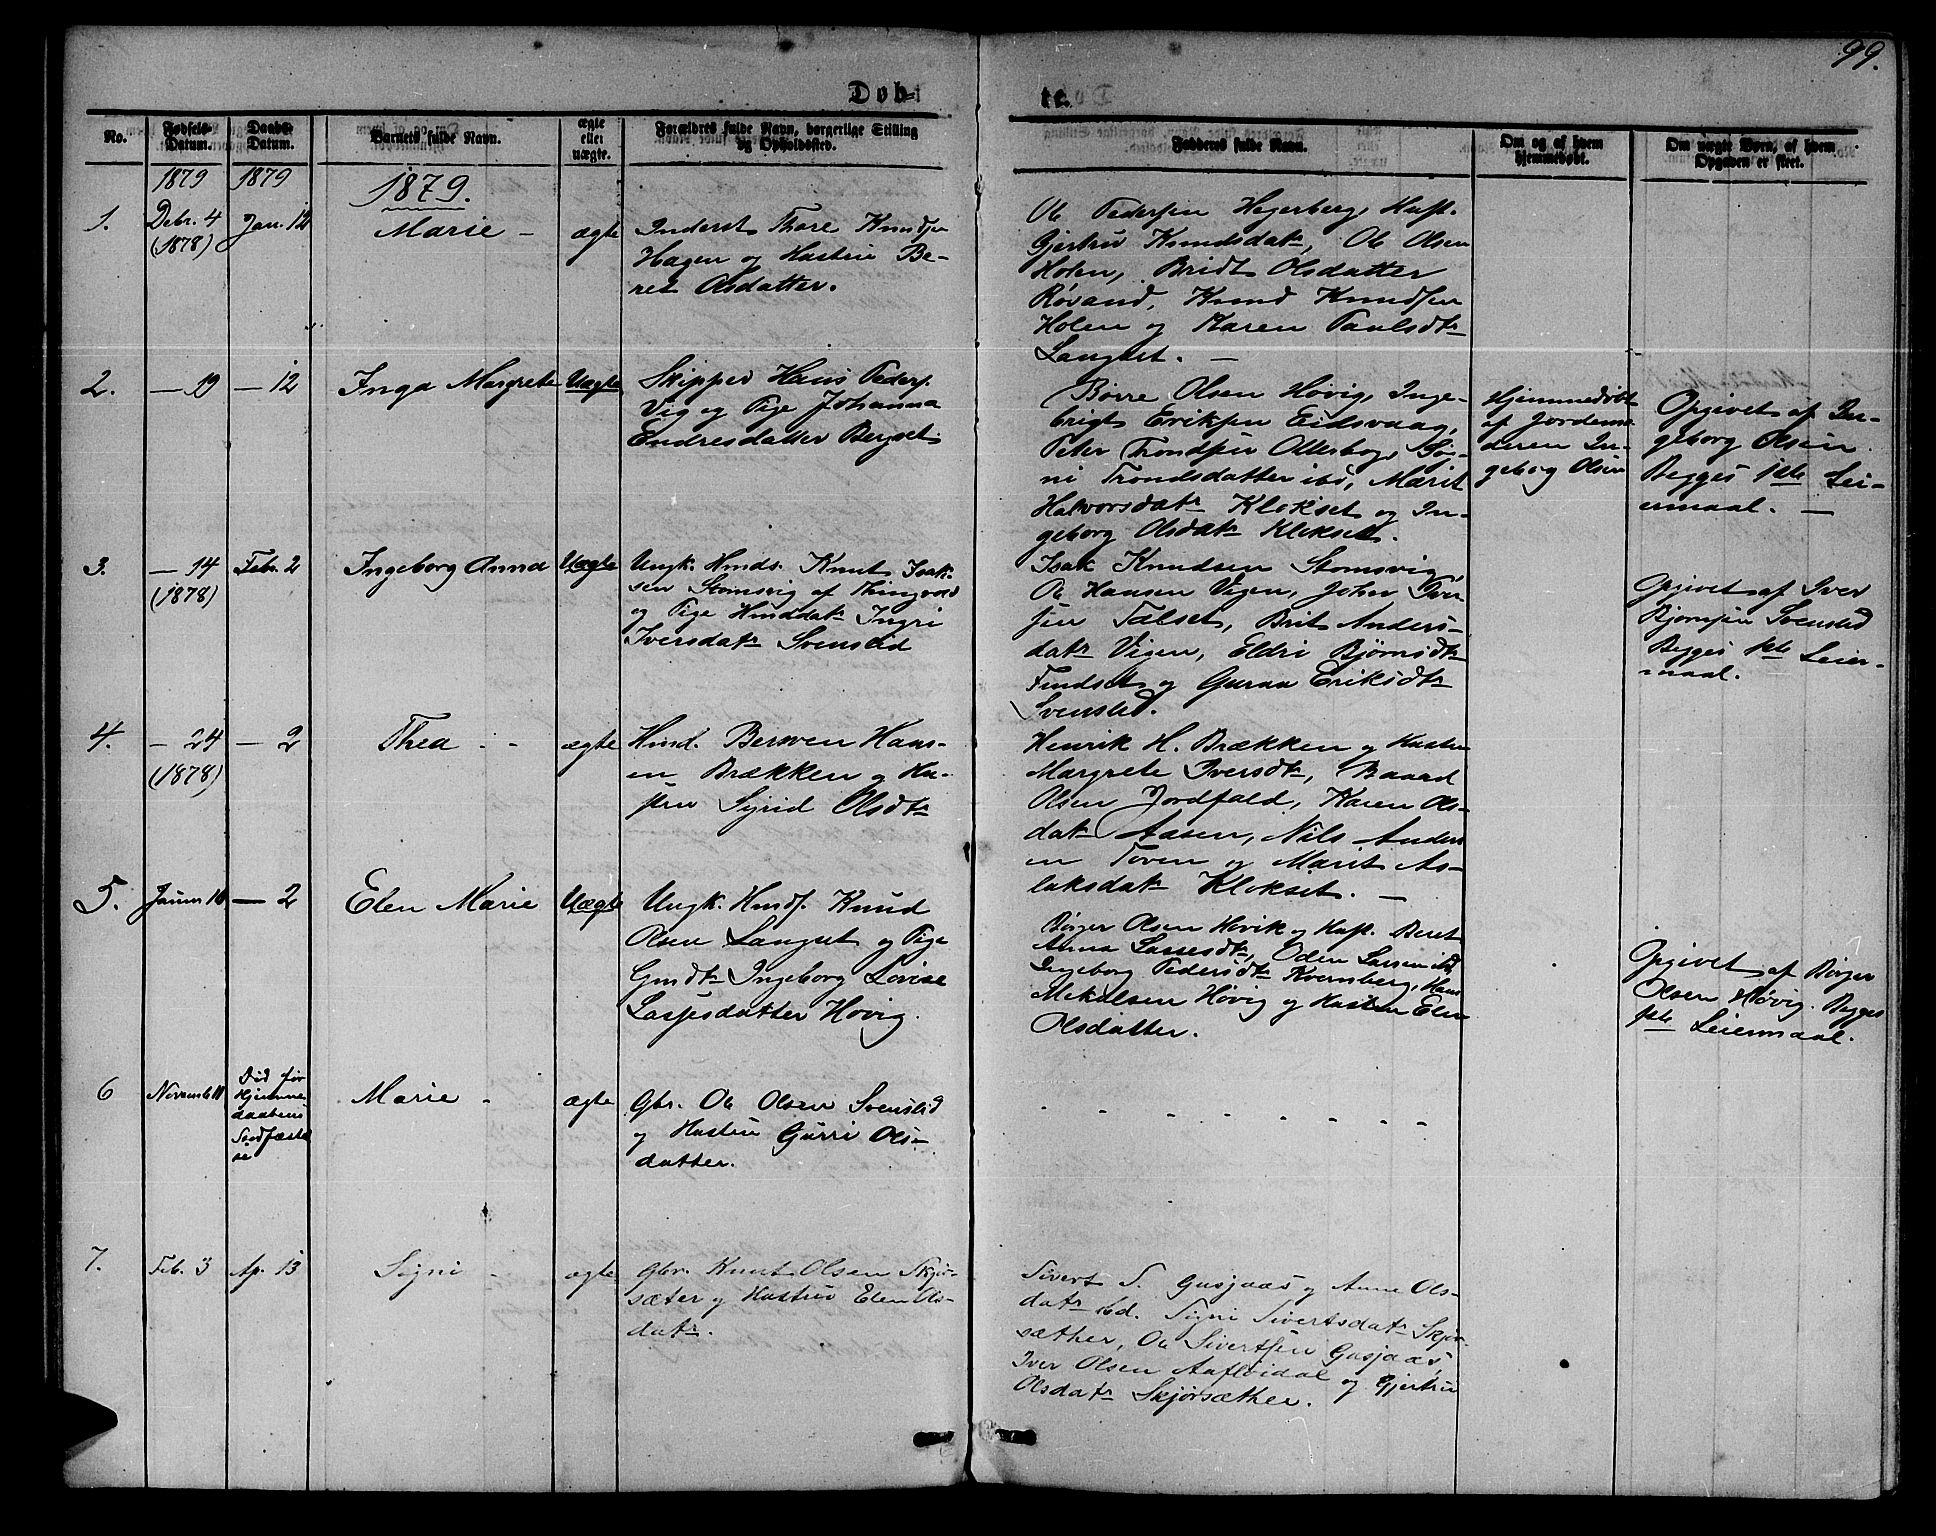 99.
Døb-
te.
No.
Fødsels-
Datum.
Daabs-
Datum.
Barnets fulde Navn.
ægte
eller
uægte.
Forældres fulde Navn, borgerlige Stilling
og Opholdssted.
Fadderes fulde Navn.
Om og af hvem
hjemmedøbt.
Om uægte Børn, af hvem
Opgaven er skeet.
1879
1879
1879.
1.
Debr. 4
(1878)
Jan. 12
Marie -
ægte
Inderst Thore Knudsen
Hagen og Hustru Be-
ret Olsdatter.
Ole Pedersen Hegerberg, Hust.
Gjertru Knudsdatr, Ole Olsen
Holen, Bridt Olsdatter
Røvand, Knud Knudsen
Holen og Karen Paulsdtr
Langset. —
2.
— 19
— 12
Inga Margrete
Uægte
Skipper Hans Peders.
Vig og Pige Johanna
Endresdatter Bergset
Børre Olsen Høvig, Inge-
brigt Eriksen Eidsvaag,
Peter Trondsen Ollerbog,
ni Trondsdatter ibd, Marit
Halvorsdatr Klokset og In-
geborg Olsdatr Klokset.
Hjemmedøbt
af Jordemo-
deren In-
geborg Olsen
Opgivet af In-
geborg Olsen.
Begges 1ste Lei-
ermaal. —
3.
— 14
(1878)
Febr. 2
Ingeborg Anna
Uægte
Ungk. Hmds. Knut Isak-
sen Stomsvig af Thingvold
og Pige Hmddatr Ingri
Iversdatr Svenslid
Isak Knudsen Stomsvig,
Ole Hansen Vigen, John Iver-
sen Talset, Brit Anders-
datr Vigen, Eldri Bjørnsdtr
Findset og Guraa Eriksdtr
Svenslid.
Opgivet af Iver
Bjørnsen Svenslid
Begges 1ste Leier-
maal.
4.
— 24
(1878)
— 2
Thea - -
ægte
Hmd. Berwen Hans-
en Brækken og Hu-
stru Sigrid Olsdtr
Henrik H. Brækken og Hustru
Margrete Iversdtr, Baard
Olsen Jordfald, Karen Ols-
datr Aasen, Nils Anders
en Toven og Marit As-
laksdatr Klokset. —
5.
Januar 16
— 2
Elen Marie
Uægte
Ungk. Hmds. Knud
Olsen Langset og Pige
Gmdtr Ingeborg Lovise
Lassesdatter Høvig.
Børger Olsen Høvik og Hust. Beret
Anna Lassesdtr, Oden Larsen ibd,
Ingeborg Pedersdtr Kvernberg, Hans
Mikalsen Høvig og Hustru Elen
Olsdatter.
Opgivet af Børger
Olsen Høvig. Begges
1ste Leiermaal.
6
Novemb 11
Død før
Hjemme-
daabens
Stadfæstel-
se
Marie -
ægte
Gbr. Ole Olsen Svenslid
og Hustru Gurri Ols-
datter.
7.
Feb. 3
Ap. 13
Signi -
ægte
Gbr. Knut Olsen Skjør-
sæter og Hustru Elen Ols-
datr.
Sivert S. Gusjaas og Anne Ols-
datr ibd. Signi Sivertsdatr Skjør-
sæther, Ole Sivertsen Gusjaas,
Iver Olsen Aafløidal og Gjertru
Olsdatr Skjørsæther.